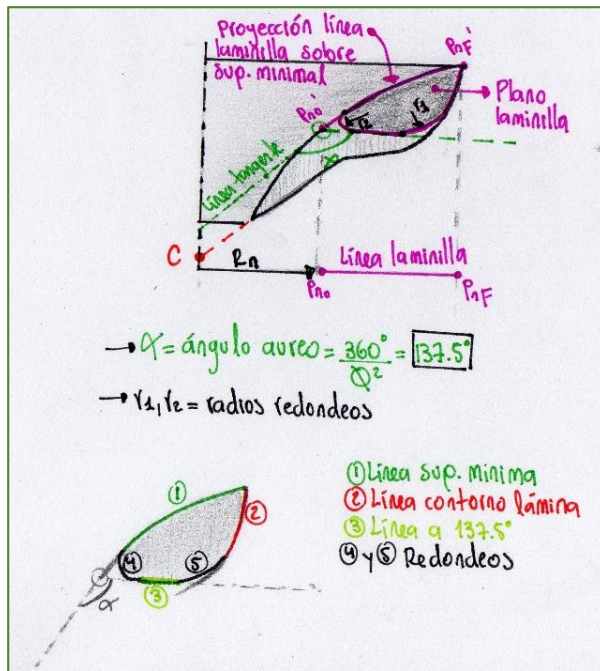 Proyección línea
laminilla sobre
sup. minimal
PnF'
Pno'
r2
r1
Plano
laminilla
Línea tangente
α
C
Rn
Línea laminilla
Pno
PnF
→ α = ángulo aureo = 360° / Φ² = 137.5°
→ r1, r2 = radios redondeos
① Línea sup. minima
② Línea contorno lámina
③ Línea a 137.5°
④ y ⑤ Redondeos
①
②
④
⑤
③
α